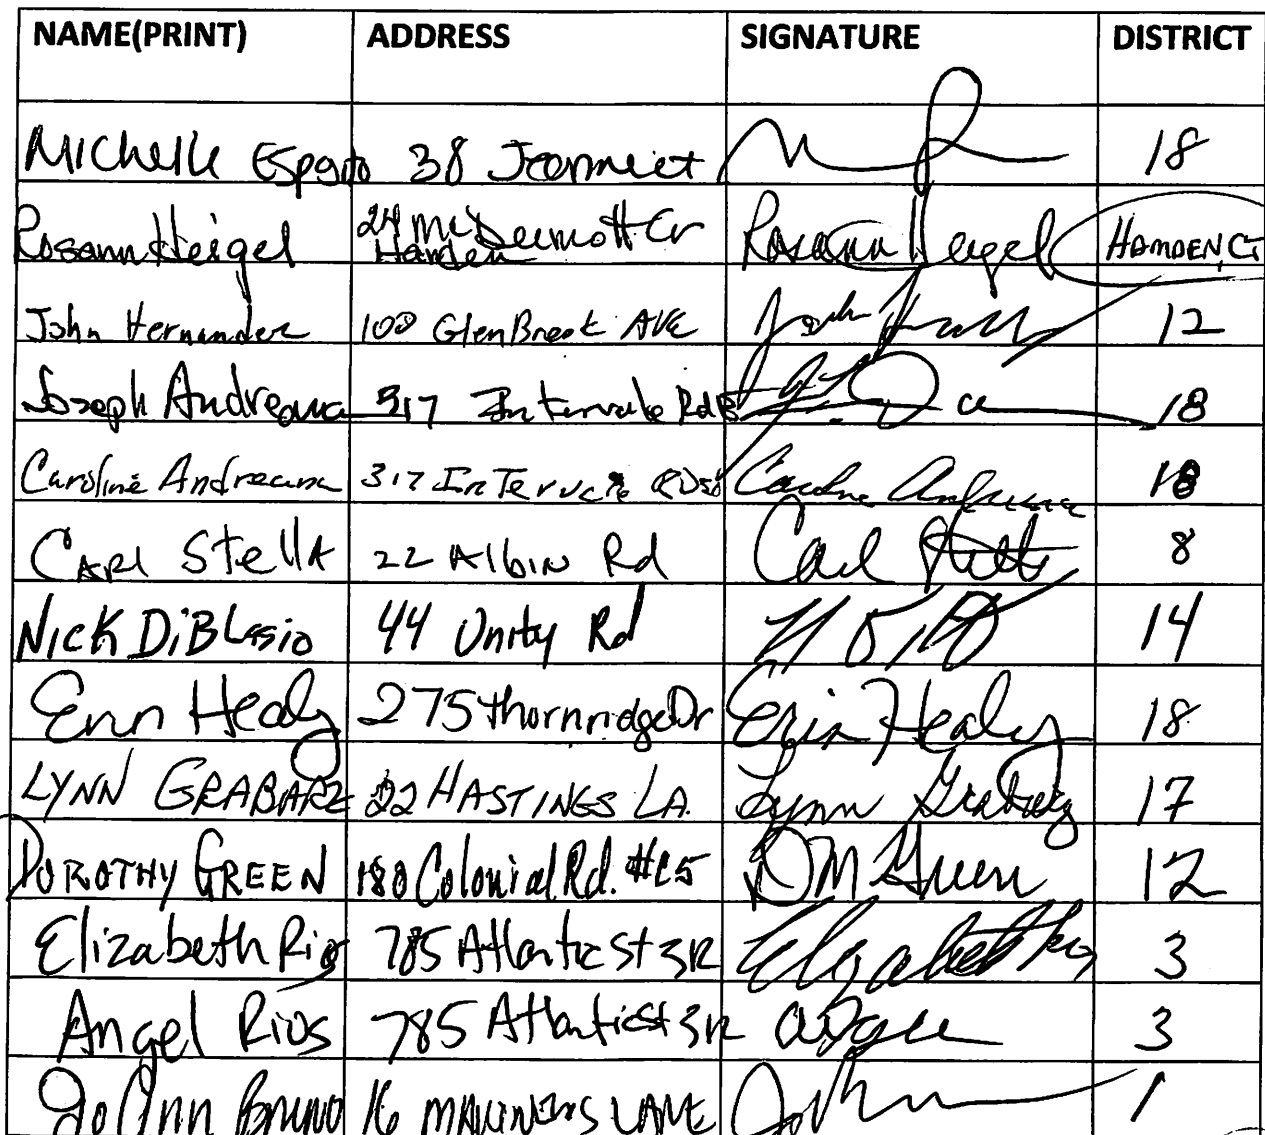 NAME(PRINT) ADDRESS SIGNATURE DISTRICT
Michelle 38 18
Rosann Heigel 24 McDermott Cr Hamden Rosann Heigel HAMDEN, CT
John Hernandez 100 GlenBrook AVE John 12
Joseph Andreana 317 Intervale Rd 18
Caroline Andreana 317 InTervale Caroline Andreana 18
CARL StellA 22 Albin Rd Carl Stella 8
NICK DiBLasio 44 Unity Rd 14
Erin Healy 275 thornridge Dr Erin Healy 18
LYNN GRABARZ 22 HASTINGS LA. Lynn Grabarz 17
DOROTHY GREEN 180 Colonial Rd. #C5 DM Green 12
Elizabeth Rios 785 Atlantic St 3R Elizabeth Rios 3
Angel Rios 785 Atlantic st 3R Angel 3
JoAnn Bruno 16 MARINERS LANE 1